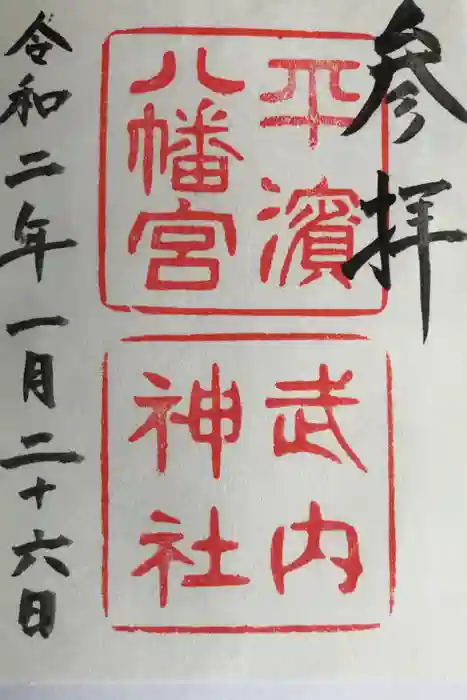 参拝
平濱
八幡宮
武内
神社
令和二年一月二十六日